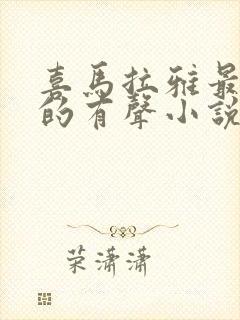 喜馬拉雅最
的有聲小說
荣潇潇